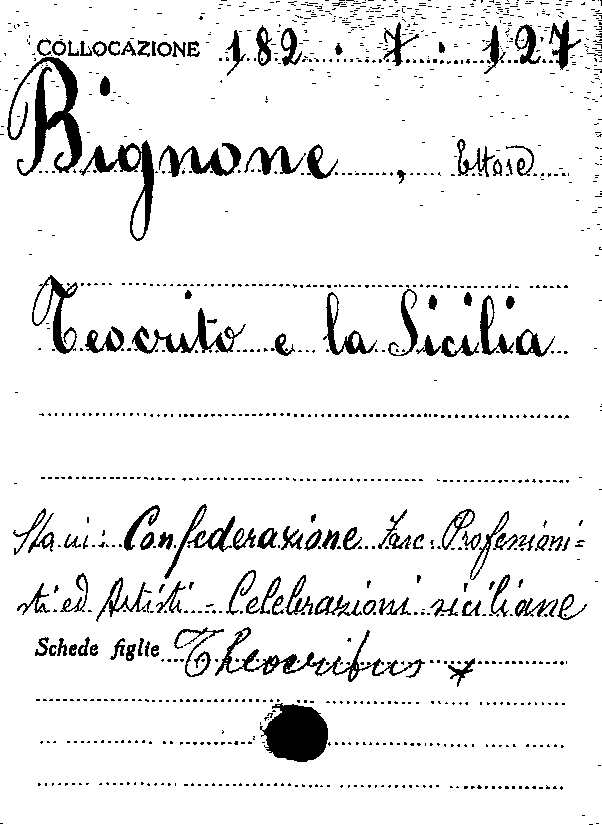 COLLOCAZIONE 182 . 7 . 127
Bignone, Ettore
Teocrito e la Sicilia
Sta in: Confederazione Fasc. Professioni=
sti ed Artisti - Celebrazioni siciliane
Schede figlie Theocritus *